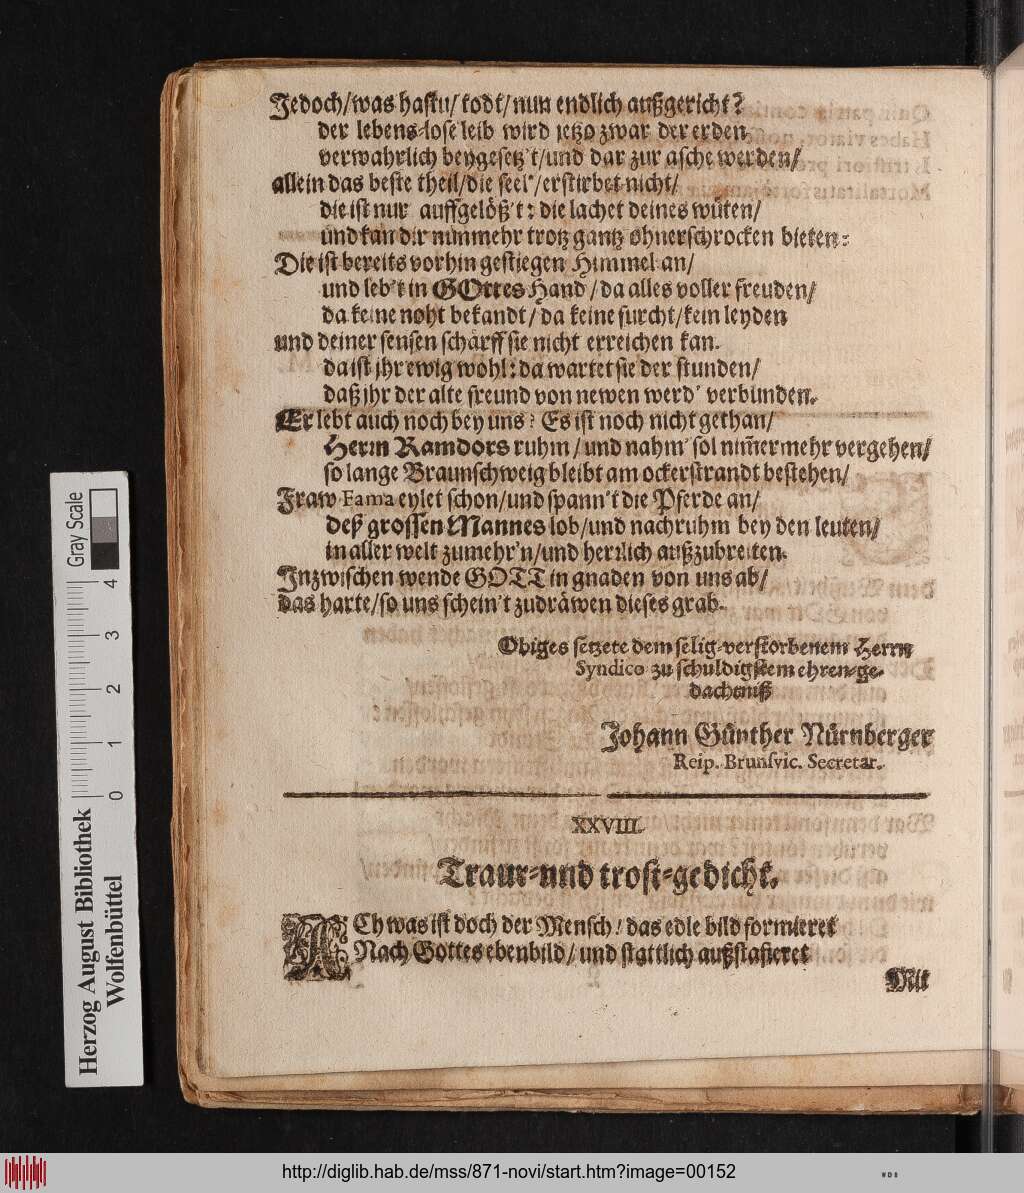 Jedoch/was hastu/todt/nun endlich außgericht?
der lebens-lose leib wird jetzo zwar der erden
verwahrlich beygesetz't/und dar zur asche werden/
allein das beste theil/die seel'/erstirbet nicht/
die ist nur auffgelöß't: die lachet deines wüten/
und kan dir nunmehr trotz gantz ohnerschrocken bieten:
Die ist bereits vorhin gestiegen Himmel an/
und leb't in GOttes Hand/da alles voller freuden/
da keine noht bekandt/da keine furcht/kein leyden
und deiner sensen schärff sie nicht erreichen kan.
da ist jhr ewig wohl: da wartet sie der stunden/
daß jhr der alte freund von newen werd' verbunden.
Er lebt auch noch bey uns: Es ist noch nicht gethan/
Herrn Ramdors ruhm/und nahm' sol nim̃ermehr vergehen/
so lange Braunschweig bleibt am ockerstrandt bestehen/
Fraw Fama eylet schon/und spann't die Pferde an/
deß grossen Mannes lob/und nachruhm bey den leuten/
in aller welt zumehr'n/und herrlich außzubreiten.
Inzwischen wende GOTT in gnaden von uns ab/
das harte/so uns schein't zudräwen dieses grab.
Obiges setzete dem selig-verstorbenem Herrn
Syndico zu schuldigstem ehren-ge-
dächtniß
Johann Günther Nürnberger
Reip. Brunsvic. Secretar.
XXVIII.
Traur-und trost-gedicht.
ACh was ist doch der Mensch/das edle bild formieret
Nach Gottes ebenbild/und stattlich außstafieret
Mit
Gray Scale
4
3
2
1
0
Herzog August Bibliothek
Wolfenbüttel
http://diglib.hab.de/mss/871-novi/start.htm?image=00152